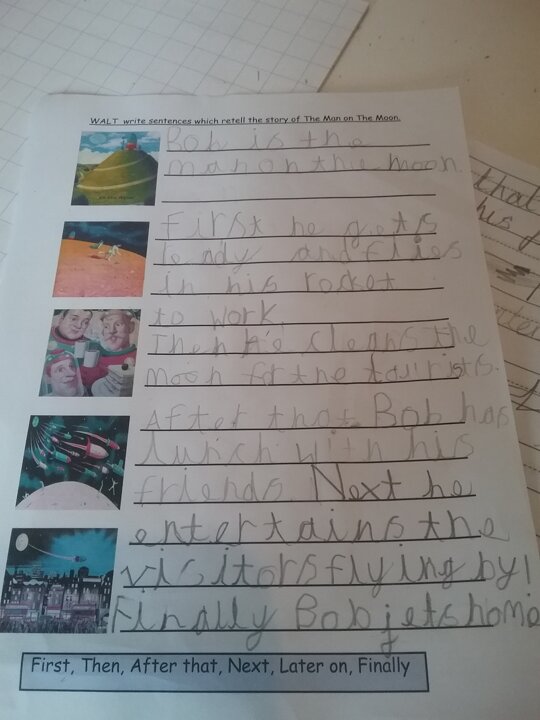 WALT write sentences which retell the story of The Man on The Moon.
Bob is the
man on the moon.
First he gets
ready and flies
in his rocket
to work.
Then he cleans the
moon for the tourists.
After that Bob has
lunch with his
friends Next he
entertains the
visitors flying by!
Finally Bob jets home
First, Then, After that, Next, Later on, Finally
that
his